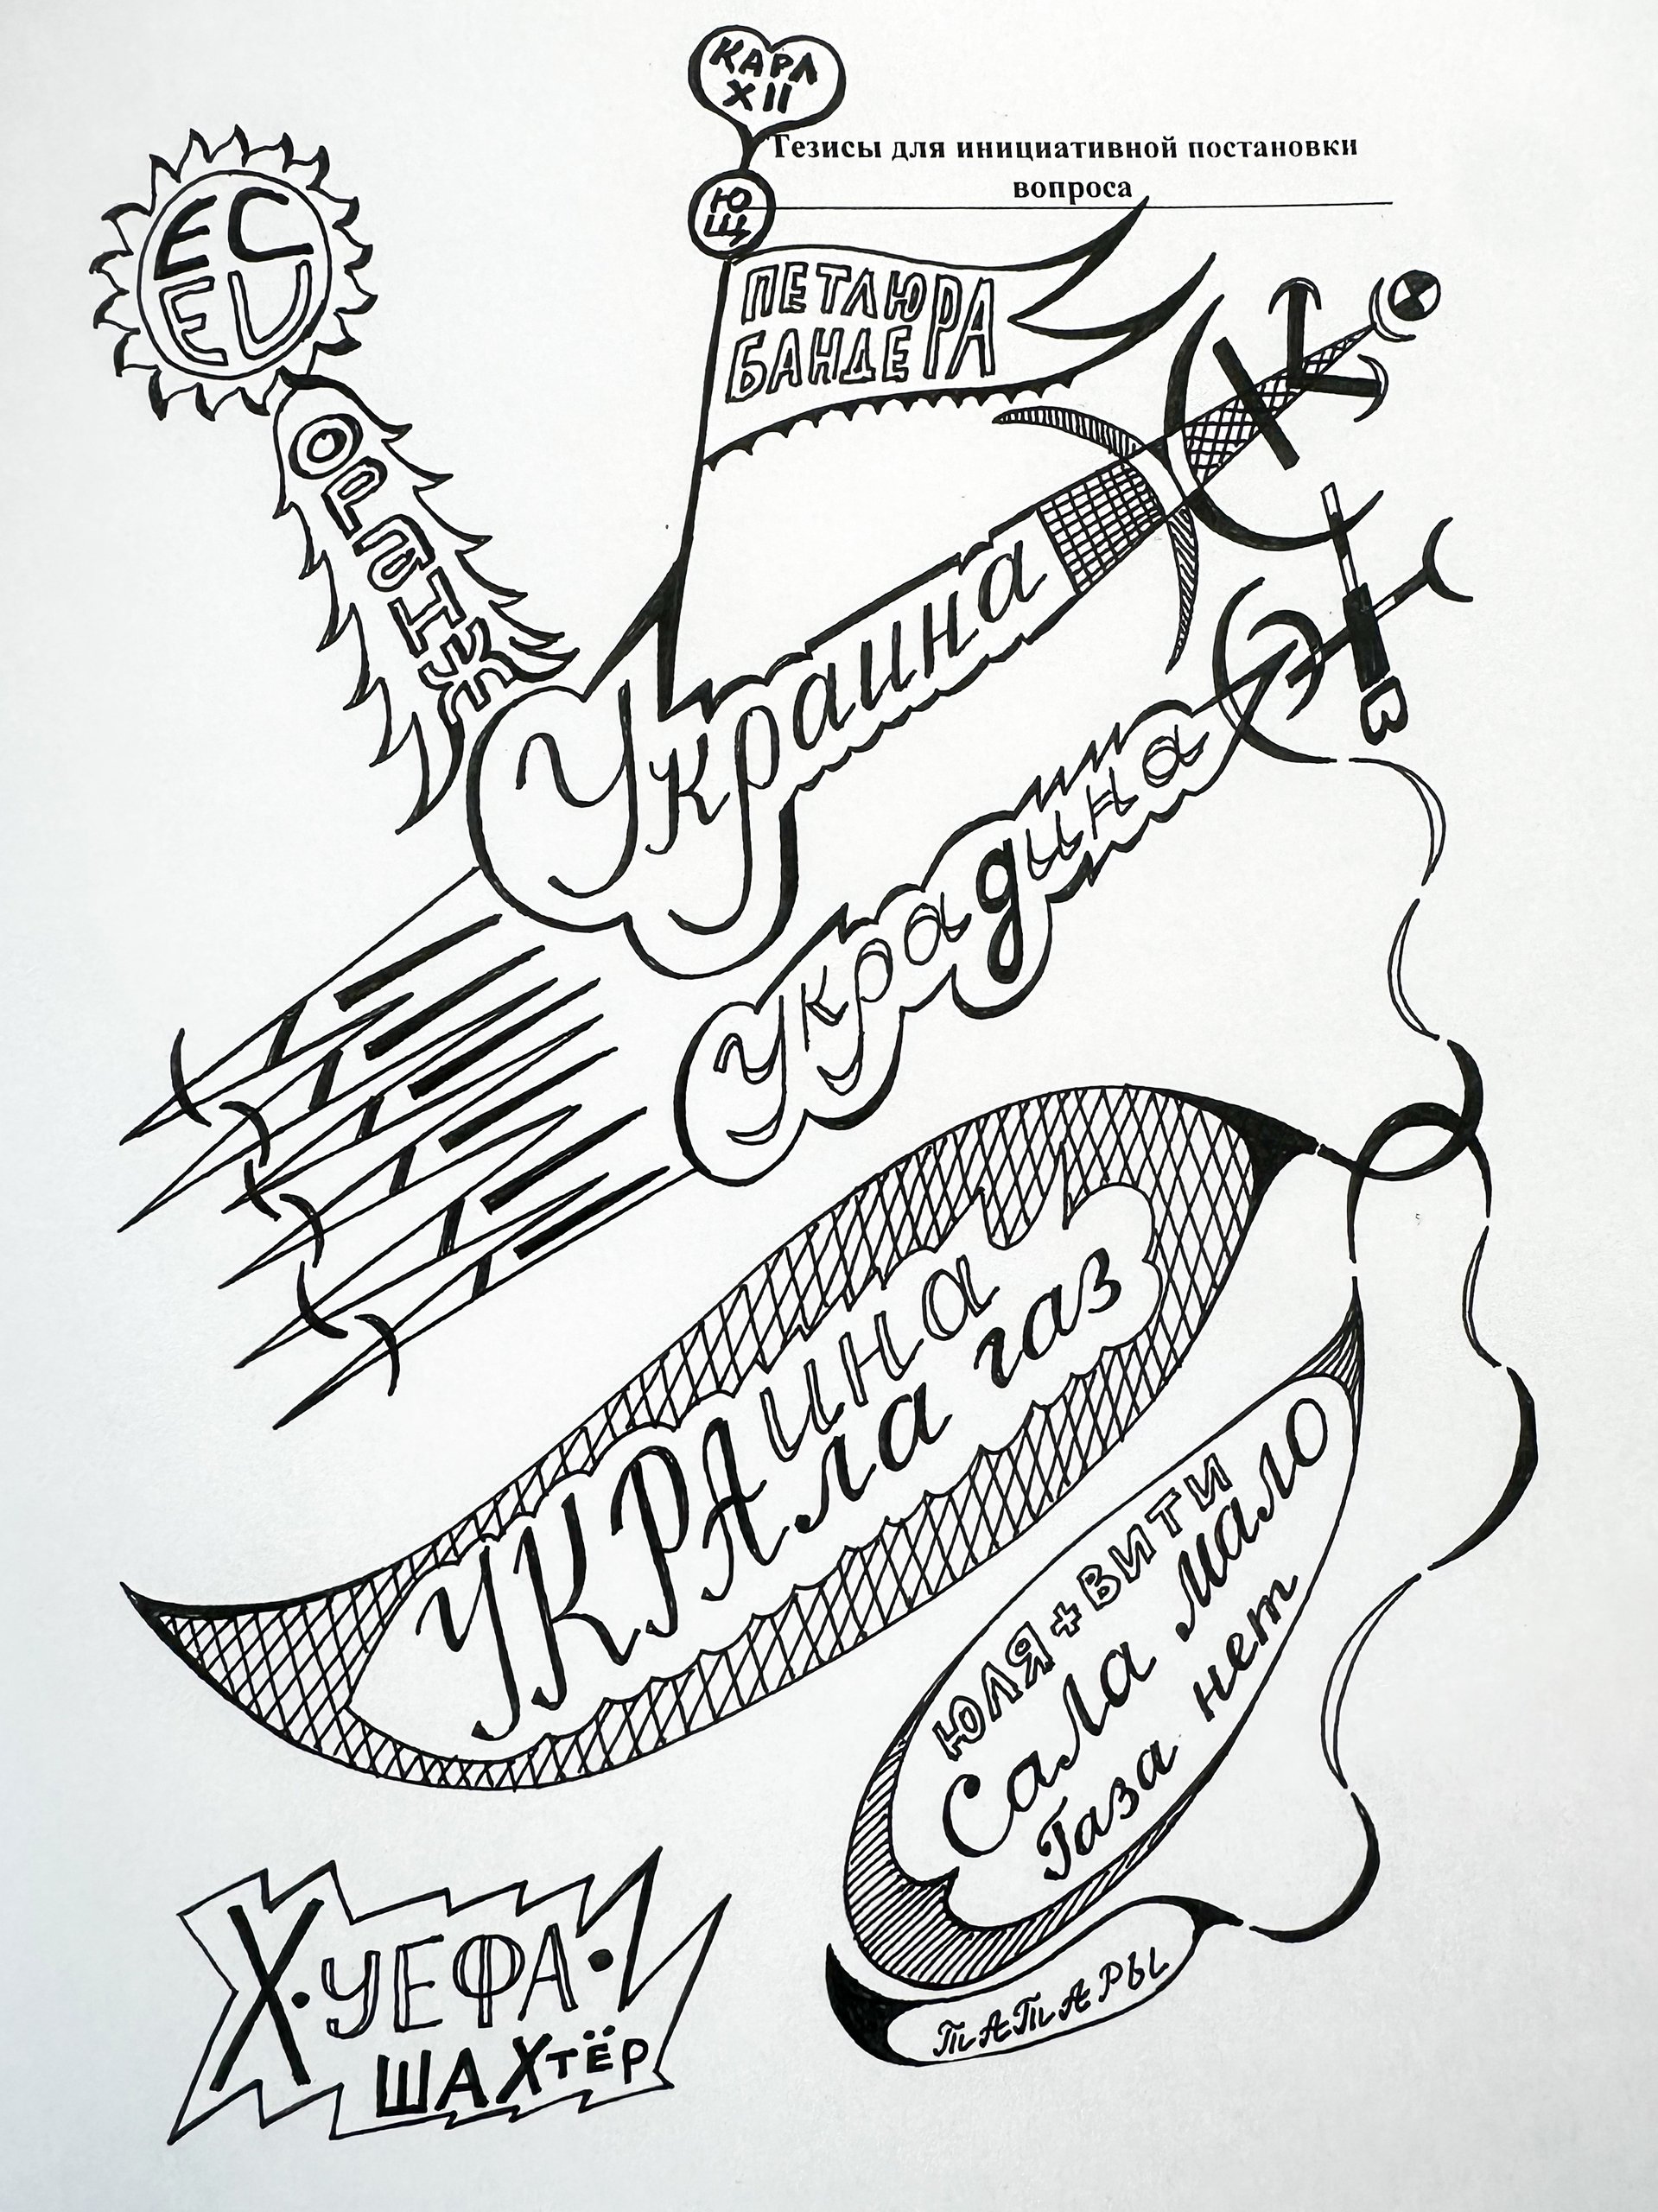 КАРЛ
XII
Тезисы для инициативной постановки
вопроса
ЮЩ
ЕС
EU
ПЕТЛЮРА
БАНДЕРА
ОРЛИК
Украина
Украдина
УКРАина
ла газ
ЮЛЯ + ВИТИ
Сала мало
Газа нет
ТАТАРЫ
Х·УЕФА·
ШАХтЁР